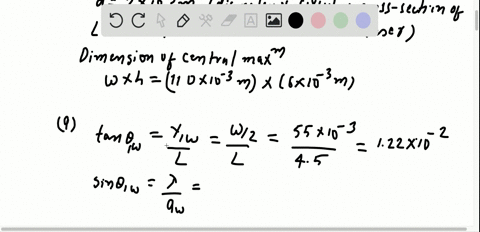 ss-section of
L
Dimension of central max^m
w × h = (110 × 10^-3 m) × (6 × 10^-3 m)
(9) tan θ_1w = y_1w / L = w/2 / L = 55 × 10^-3 / 4.5 = 1.22 × 10^-2
sin θ_1w = λ / a_w =